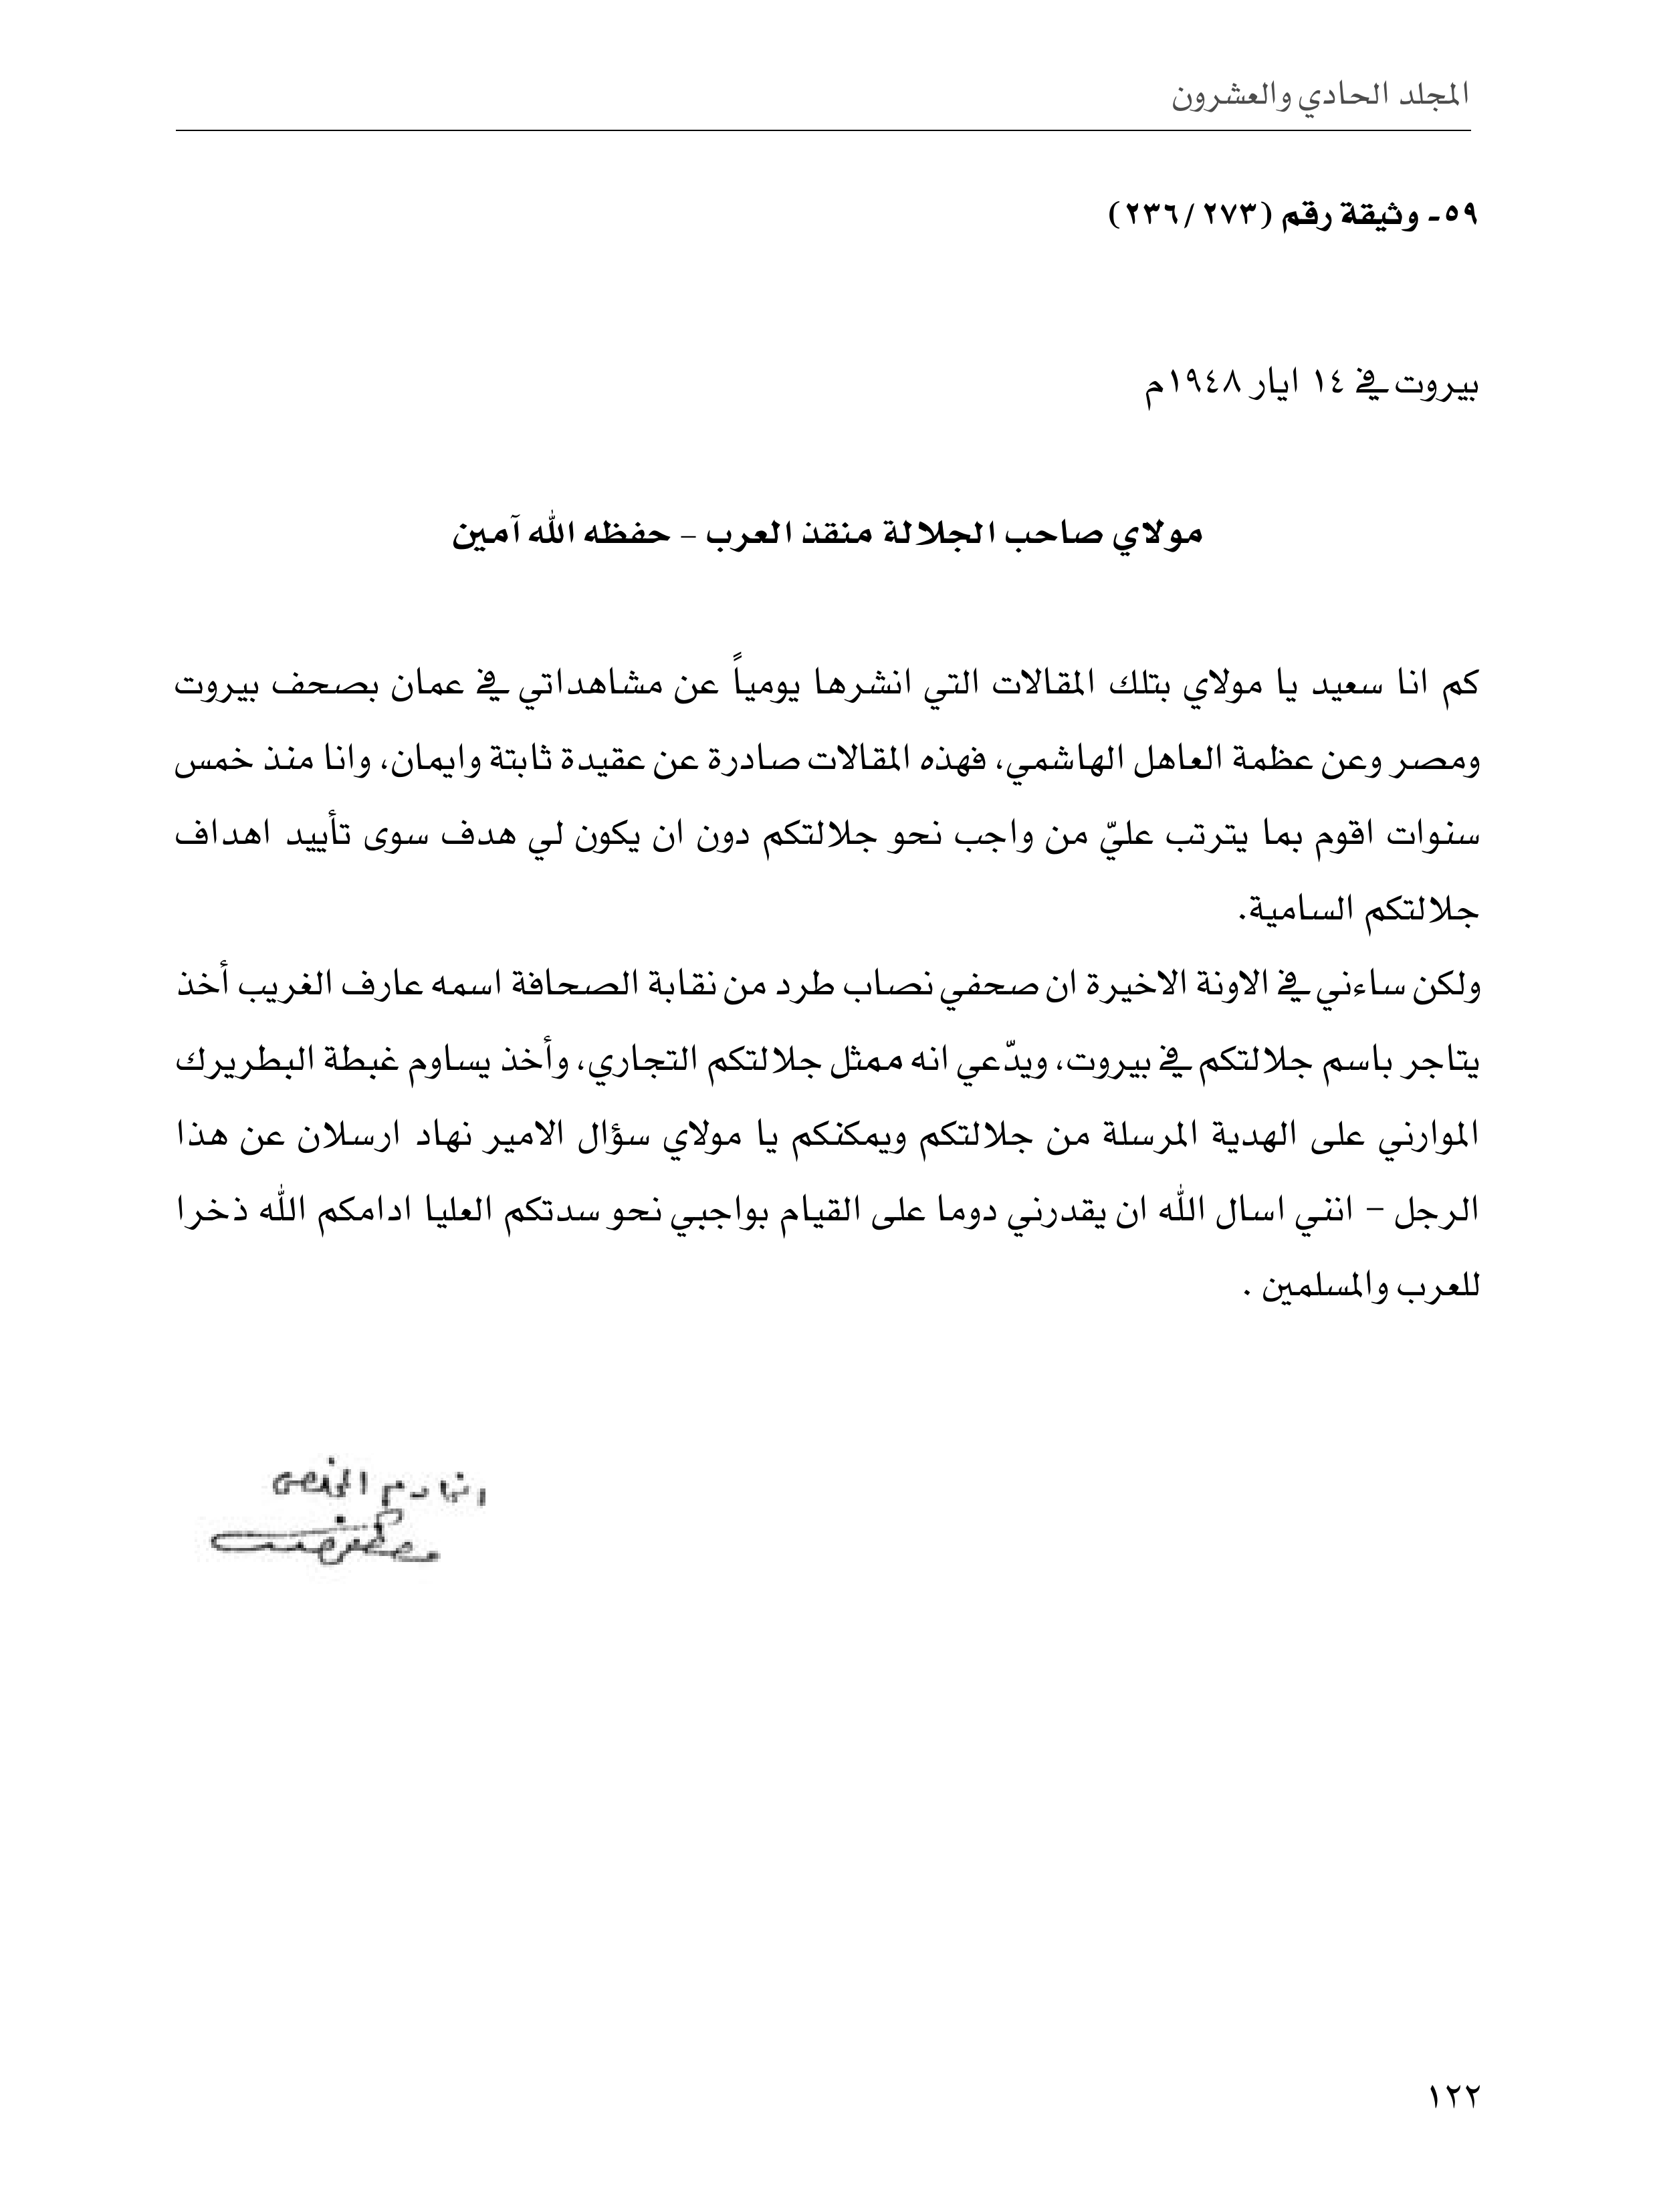 المجلد الحادي والعشرون
٥٩- وثيقة رقم (٢٧٣/ ٢٣٦)
بيروت في ١٤ ايار ١٩٤٨م
مولاي صاحب الجلالة منقذ العرب – حفظه الله آمين
كم انا سعيد يا مولاي بتلك المقالات التي انشرها يومياً عن مشاهداتي في عمان بصحف بيروت
ومصر وعن عظمة العاهل الهاشمي، فهذه المقالات صادرة عن عقيدة ثابتة وايمان، وانا منذ خمس
سنوات اقوم بما يترتب عليّ من واجب نحو جلالتكم دون ان يكون لي هدف سوى تأييد اهداف
جلالتكم السامية.
ولكن ساءني في الاونة الاخيرة ان صحفي نصاب طرد من نقابة الصحافة اسمه عارف الغريب أخذ
يتاجر باسم جلالتكم في بيروت، ويدّعي انه ممثل جلالتكم التجاري، وأخذ يساوم غبطة البطريرك
الموارني على الهدية المرسلة من جلالتكم ويمكنكم يا مولاي سؤال الامير نهاد ارسلان عن هذا
الرجل – انني اسال الله ان يقدرني دوما على القيام بواجبي نحو سدتكم العليا ادامكم الله ذخرا
للعرب والمسلمين .
الخادم المخلص
١٢٢